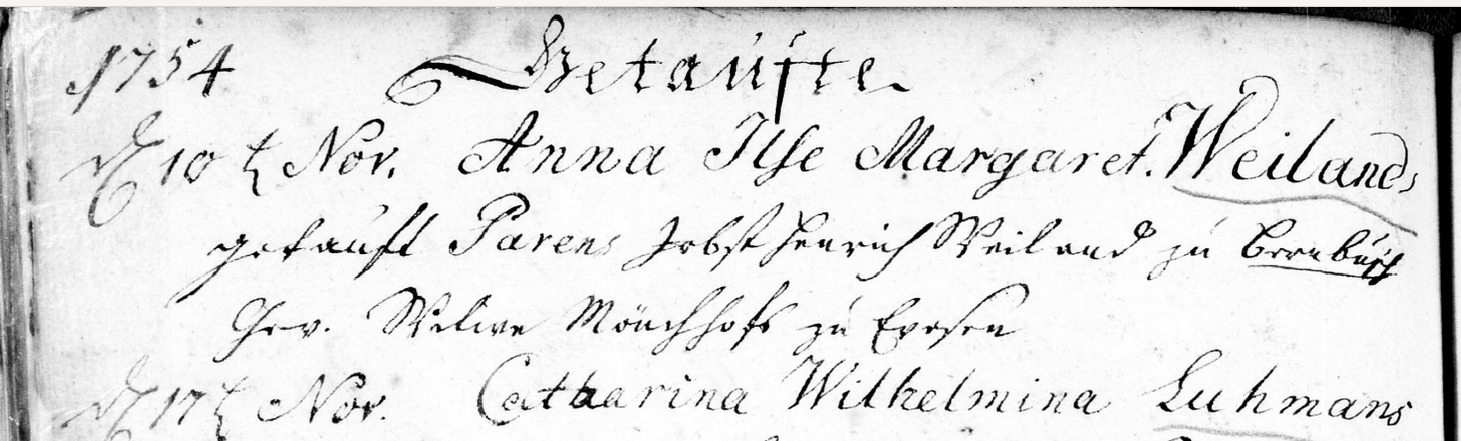 1754 Getaufte
d 10 t Nov. Anna Ilse Margaret. Weilands
getauft Parens Jobst Henrich Weiland zu Bernbusch
Gev. Witwe Mönchhofs zu
d 17 t Nov. Catharina Wilhelmina Luhmans